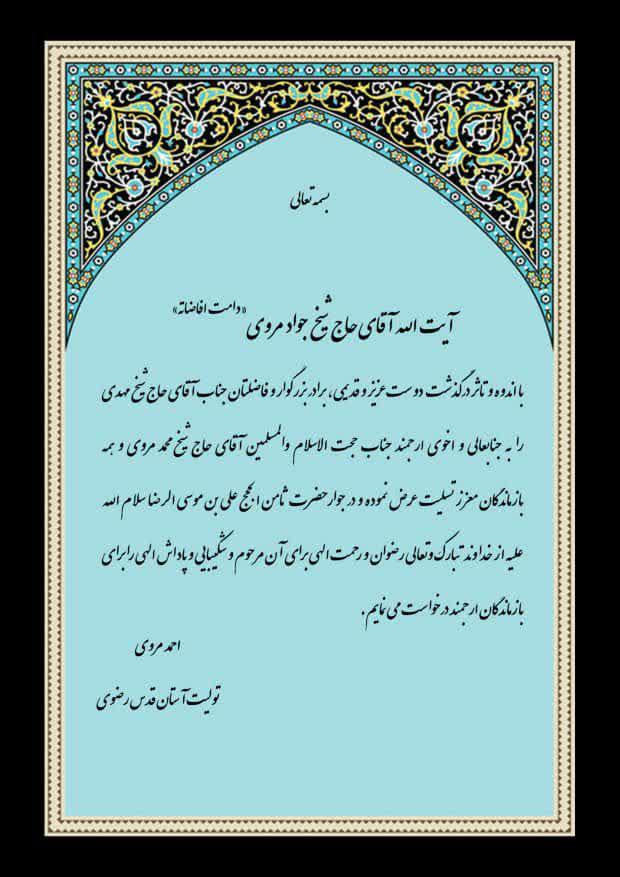 بسمه تعالی
آیت الله آقای حاج شیخ جواد مروی «دامت افاضاته»
با اندوه و تاثر درگذشت دوست عزیز و قدیمی، برادر بزرگوار و فاضلتان جناب آقای حاج شیخ مهدی
را به جنابعالی و اخوی ارجمند جناب حجت الاسلام والمسلمین آقای حاج شیخ محمد مروی و همه
بازماندگان معزز تسلیت عرض نموده و در جوار حضرت ثامن الحجج علی بن موسی الرضا سلام الله
علیه از خداوند تبارک وتعالی رضوان و رحمت الهی برای آن مرحوم و شکیبایی و پاداش الهی را برای
بازماندگان ارجمند درخواست می نمایم .
احمد مروی
تولیت آستان قدس رضوی